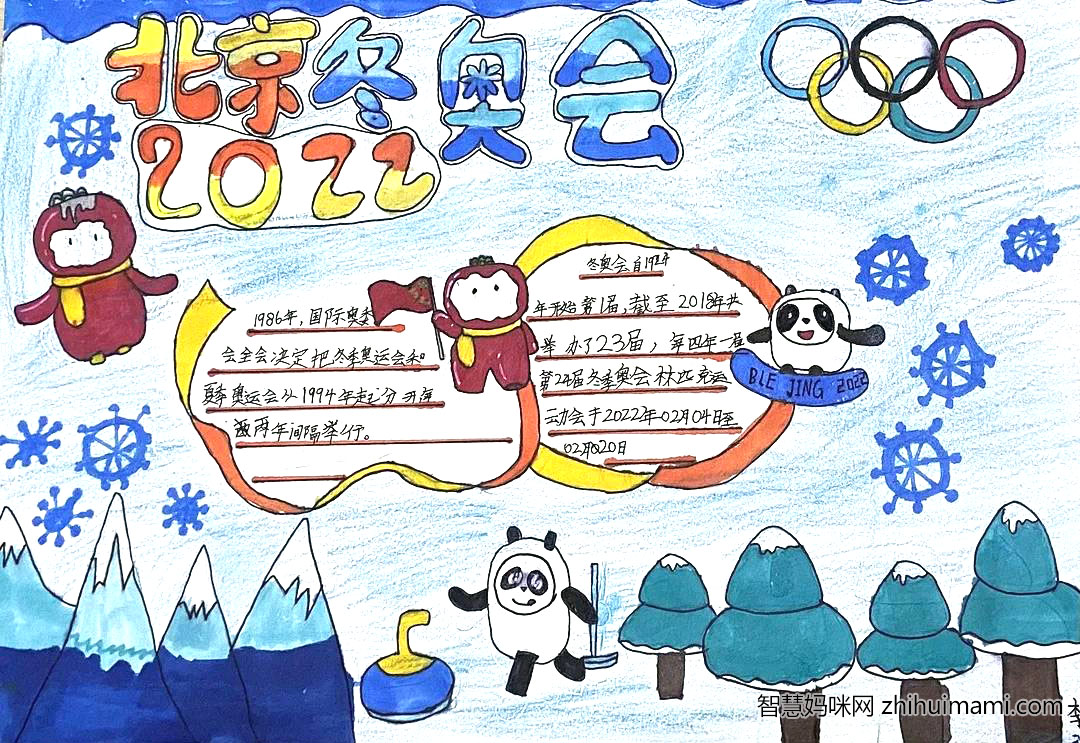 北京冬奥会
2022
1986年，国际奥委
会全会决定把冬季奥运会和
夏季奥运会从1994年起分开每
两年间隔举行。
冬奥会自1924
年开始第1届，截至2018年共
举办了23届，每四年一届
第24届冬季奥会林匹克运
动会于2022年02月04日至
02月020日
BLE JING 2022
智慧妈咪网 zhihuimami.com